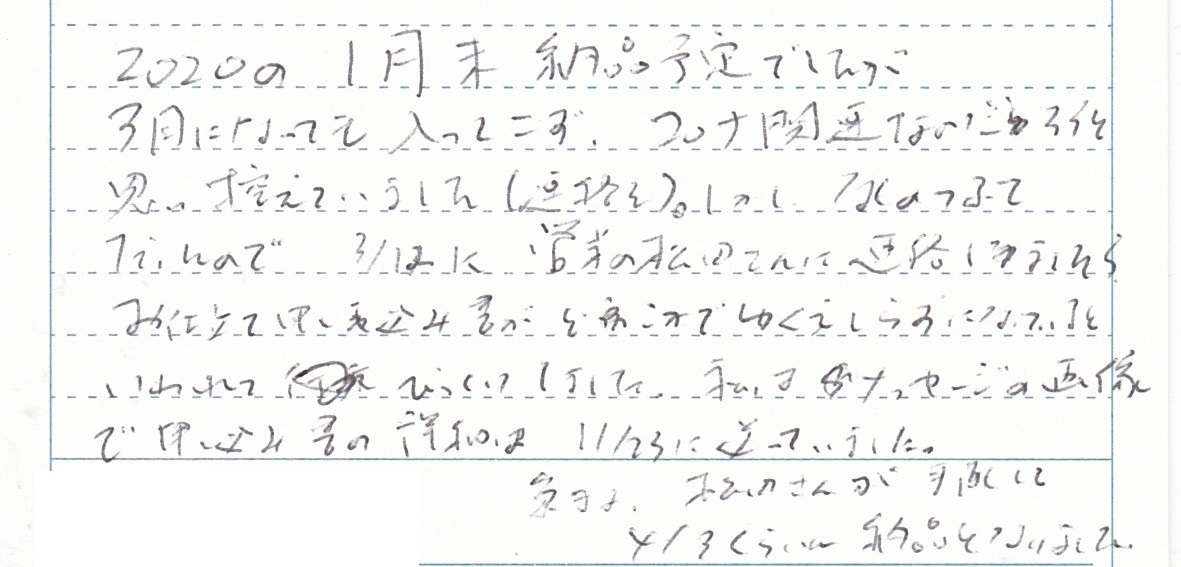 2020の 1月末 納品予定でしたが
3月になっても 入ってこず、コロナ関連なのだろうと
思い 控えていました(連絡を)。しかし
ので 3/12に 営業の松田さんに連絡しましたら
お仕立て申し込み書がどこかでゆくえしらずになっていると
いわれて びっくりしました。私はメッセージの画像
で申し込み書の詳細は 11/23に送っていました。
松田さんが手配して
4/3くらいに 納品となりました。